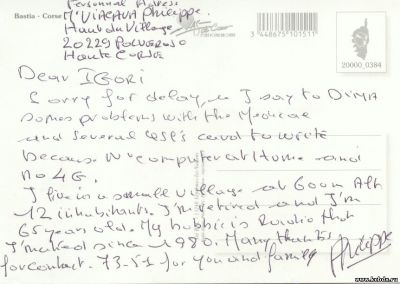 Personnal Adress
Mr VIACAVA Philippe
Haut du Village
20229 POLVEROSO
Haute CORSE
Bastia - Corse
3 448675 101511
20000_0384
Dear IGORI
Sorry for delay, as I say to DIMA
somes problems with the Medicae
and several QSL's card to write
because no computer at Home and
no 4G.
I live in a small village at 600m Alt
12 inhabitants. I'm retired and I'm
65 year old. My hobbie is Radio that
I'maked since 1980. Many thanks
for contact. 73-51 for you and family
Philippe
www.kobda.ru